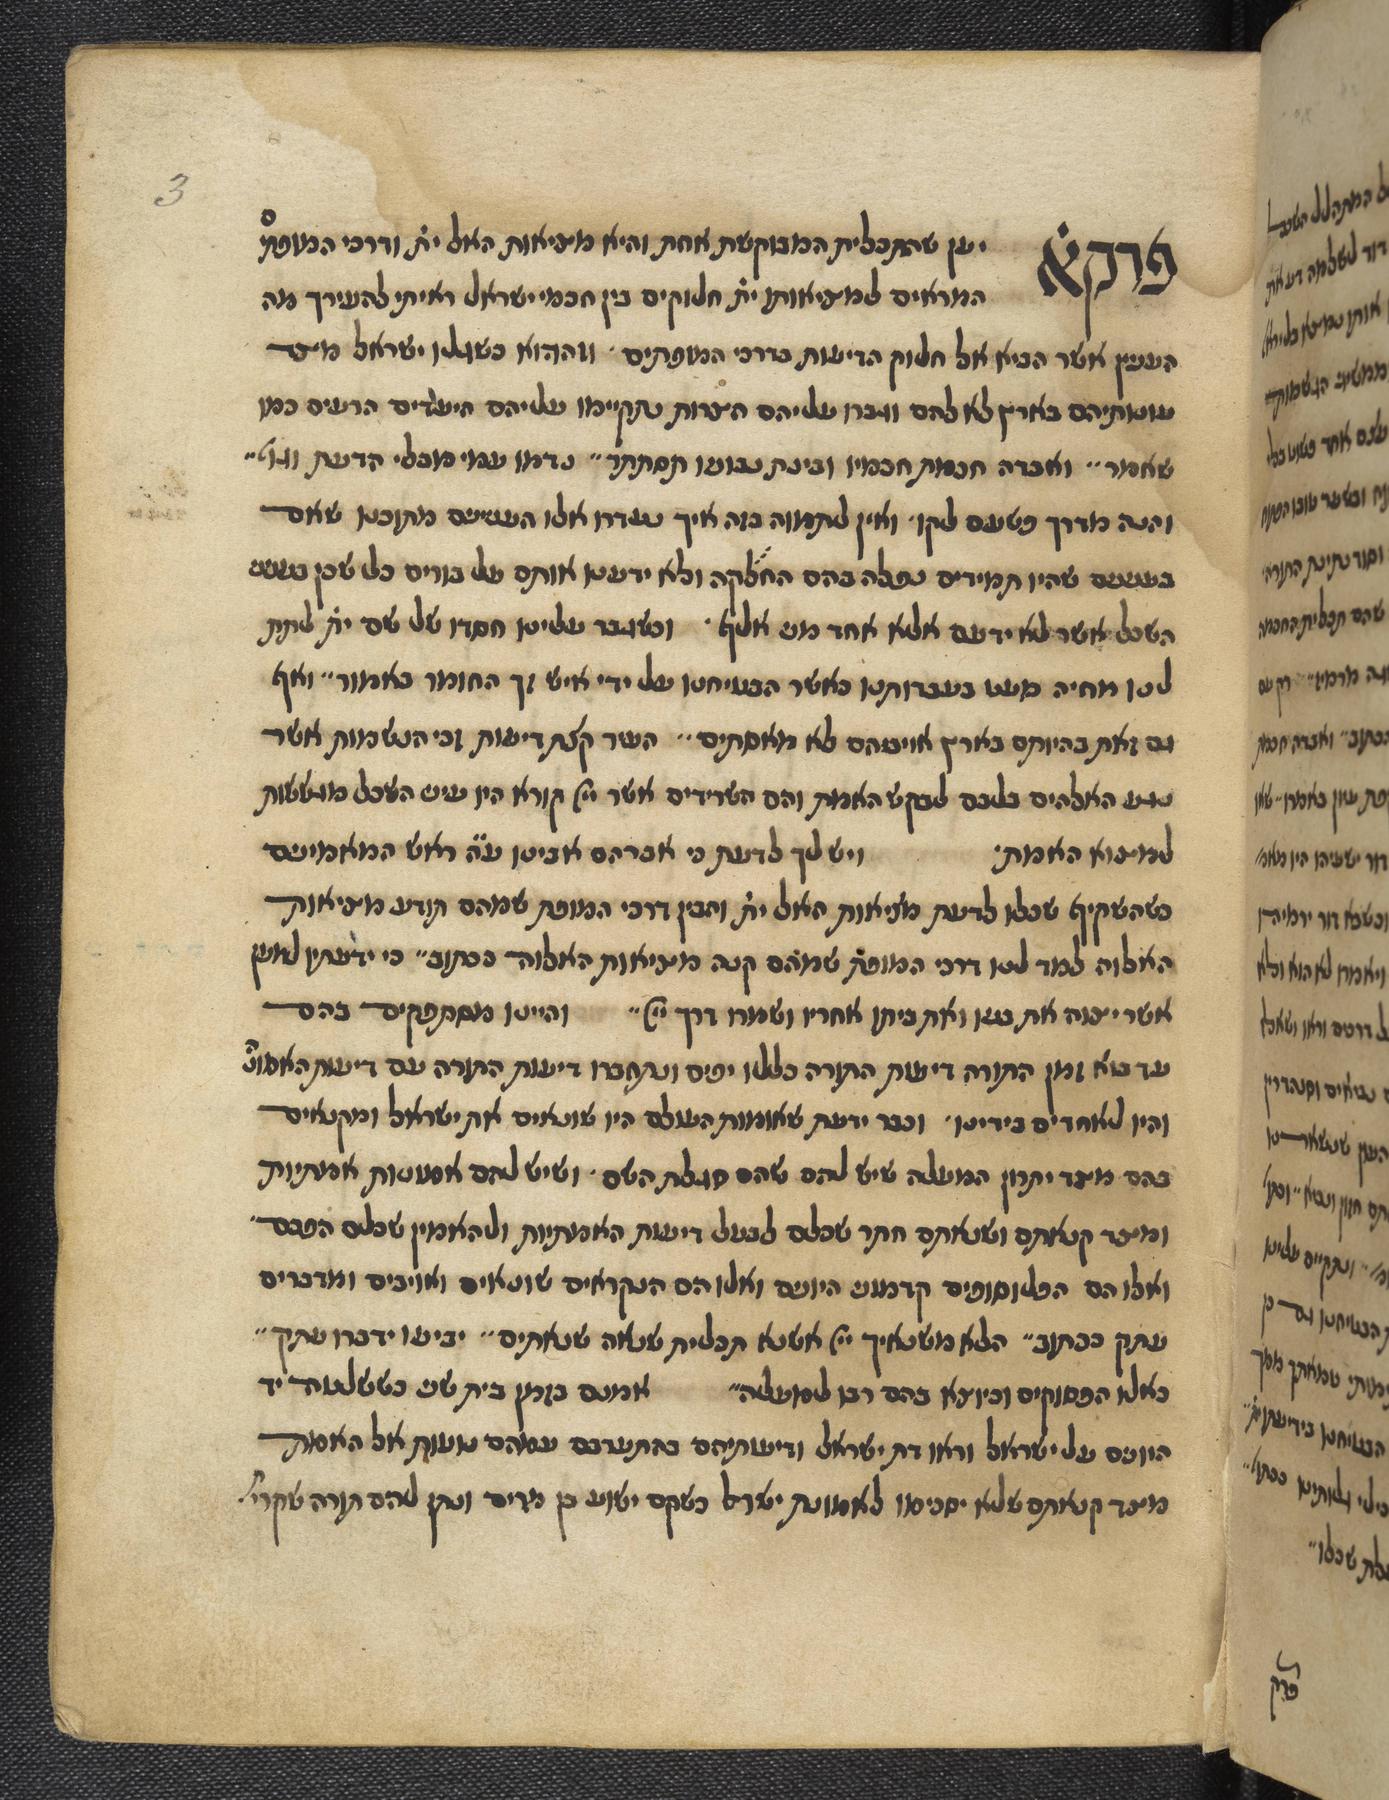 3
פרק א יען שהתכלית המבוקשת אחת והיא מציאות האל ית' ודרכי המופת'
המראים למציאותו ית' חלוקים בין חכמי ישראל ראיתי להעירך מה
הענין אשר הביא אל חלוק הדיעות בדרכי המופתים. וההוא כשגלו ישראל מצד
עונותיהם בארץ לא להם וגברו עליהם הצרות נתקיימו עליהם היעדים הרעים כמו
שאמר״ ואבדה חכמת חכמיו ובינת נבוניו תסתתר״ נדמו עמי מבלי הדעת וגו'״
והנה מדרך פשעם לקו. ואין לתמוה בזה איך נעדרו אלו הענינים מתוכנו שאם
בענינים שהיו תמידים נפלה בהם החלקה ולא ידענו אותם על בורים כל שכן בעניני
השכל אשר לא ידעם אלא אחד מני אלף. וכשגבר עלינו חסדו של שם ית' לתת
לנו מחיה מעט בעבדותנו כאשר הבטיחנו על ידי איש זך החומר באמור״ ואף
גם זאת בהיותם בארץ אויביהם לא מאסתים״ העיר קצת דיעות זכי הנשמות אשר
נגע האלהים בלבם לבקש האמת והם השרידים אשר ייי קורא היו עיני השכל מגששות
למצוא האמת: ויש לך לדעת כי אברהם אבינו ע״ה ראש המאמינים
כשהשקיף שכלו לדעת מציאות האל ית' והבין דרכי המופת שמהם תודע מציאות
האלוה למד לנו דרכי המופת' שמהם קנה מציאות האלוה ככתוב״ כי ידעתיו למען
אשר יצוה את בניו ואת ביתו אחריו ושמרו דרך ייי״ והיינו מסתפקים בהם
עד בוא זמן התורה דיעות התורה כללו יפים ונתחברו דיעות התורה עם דיעות האמונ'
והיו לאחדים בידינו. וכבר ידעת שאומות העולם היו שונאים את ישראל ומקנאים
בהם מצד יתרון המעלה שיש להם שהם סגלת השם. ושיש להם אמונות אמתיות
ומצד קנאתם ושנאתם חתר שכלם לבטל דיעות האמתיות ולהאמין שכלם הפכם.
ואלו הם הפלוסופים קדמוני היונים ואלו הם הנקראים שונאים ואויבים ומדברים
עתק ככתוב״ הלא משנאיך ייי אשנא תכלית שנאה שנאתים״ יביעו ידברו עתק״
כאלו הפסוקים וכיוצא בהם רבו למעלה״ אמנם בזמן בית שני כששלטה יד
היונים על ישראל וראו דת ישראל ודיעותיהם בהתערבם עמהם נוטות אל האמת
מצד קנאתם שלא יסכימו לאמונת ישראל כשקם ישוע בן מרים ונתן להם תורה שקרי'